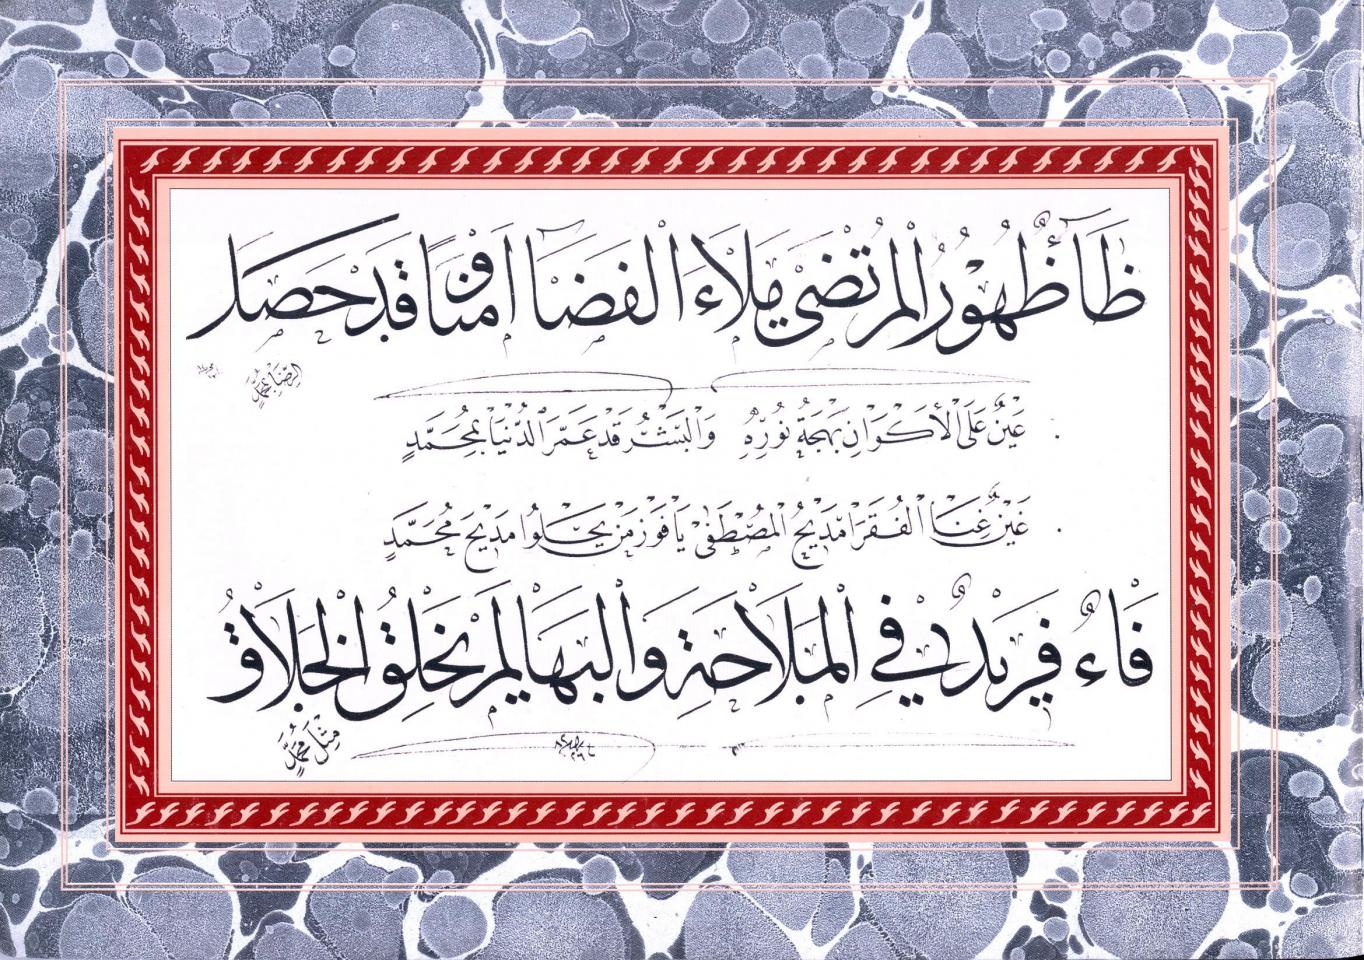 ظَاءٌ ظُهُورُ الْمُرْتَضَى مَلَاءَ الْفَضَا اَمْنًا وَ قَدْ حَصَلَ
الرِّضَا بِمُحَمَّدٍ
عَيْنٌ عَلَى الْأَكْوَانِ بَهْجَةُ نُورِهِ وَالْبِشْرُ قَدْ عَمَّرَ الدُّنْيَا بِمُحَمَّدٍ
غَيْنٌ غِنَا الْفُقَرَا مَدِيحُ الْمُصْطَفَى يَا فَوْزَ مَنْ يَحْلُوا مَدِيحَ مُحَمَّدٍ
فَاءٌ فَرِيدٌ فِي الْمَلَاحَةِ وَالْبَهَا لَمْ يَخْلُقِ الْخَلَّاقُ
مِثْلَ مُحَمَّدٍ